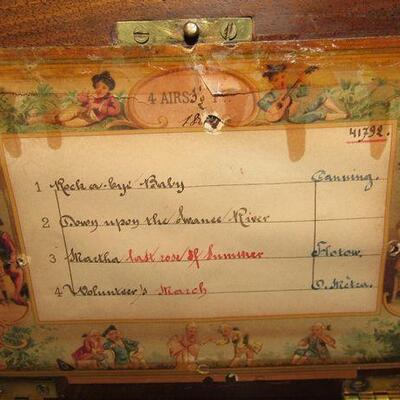 4 AIRS
41792.
1 Rock a-bye Baby Canning.
2 Down upon the Swanee River
3 Martha last rose of Summer Flotow.
4 Volunteer's March O. Métra.